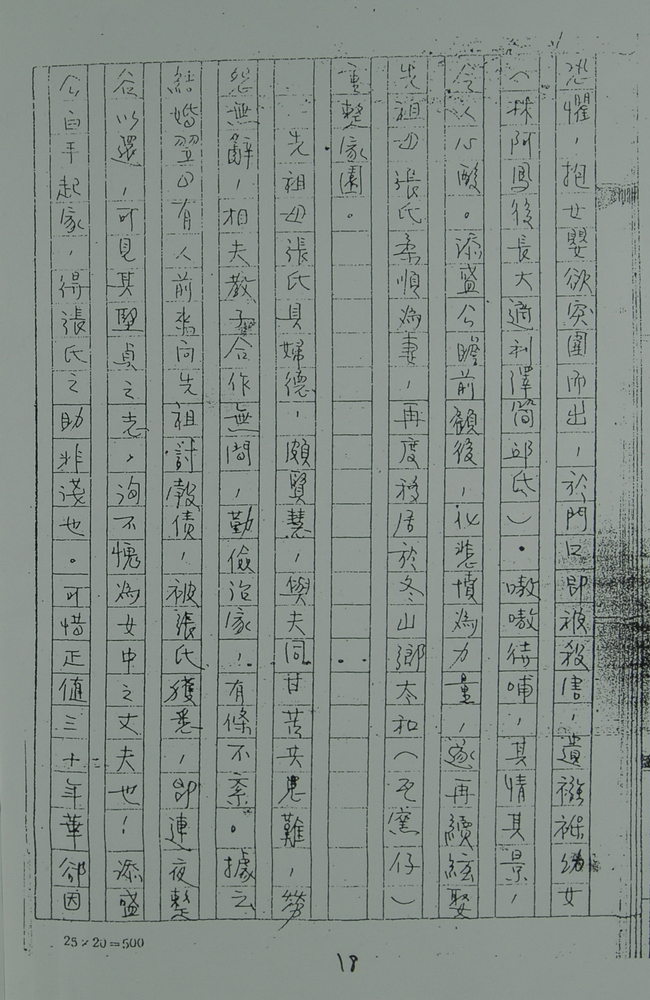 恐懼，抱女嬰欲突圍而出，於門口即被殺害，遺襁褓幼女
（林阿鳳後長大適利澤簡邱氏）。嗷嗷待哺，其情其景，
令人心酸。添盛公瞻前顧後，化悲憤為力量，遂再續絃娶
先祖妣張氏柔順為妻，再度移居於冬山鄉太和（瓦窯仔）
重整家園。
先祖妣張氏具婦德，頗賢慧，與夫同甘苦共患難，勞
怨無辭，相夫教子合作無間，勤儉治家，有條不紊。據云
結婚翌日有人前來向先祖討穀債，被張氏獲悉，即連夜整
谷以還，可見其堅貞之志，洵不愧為女中之丈夫也！添盛
公白手起家，得張氏之助非淺也。可惜正值三十年華卻因
25×20=500
18